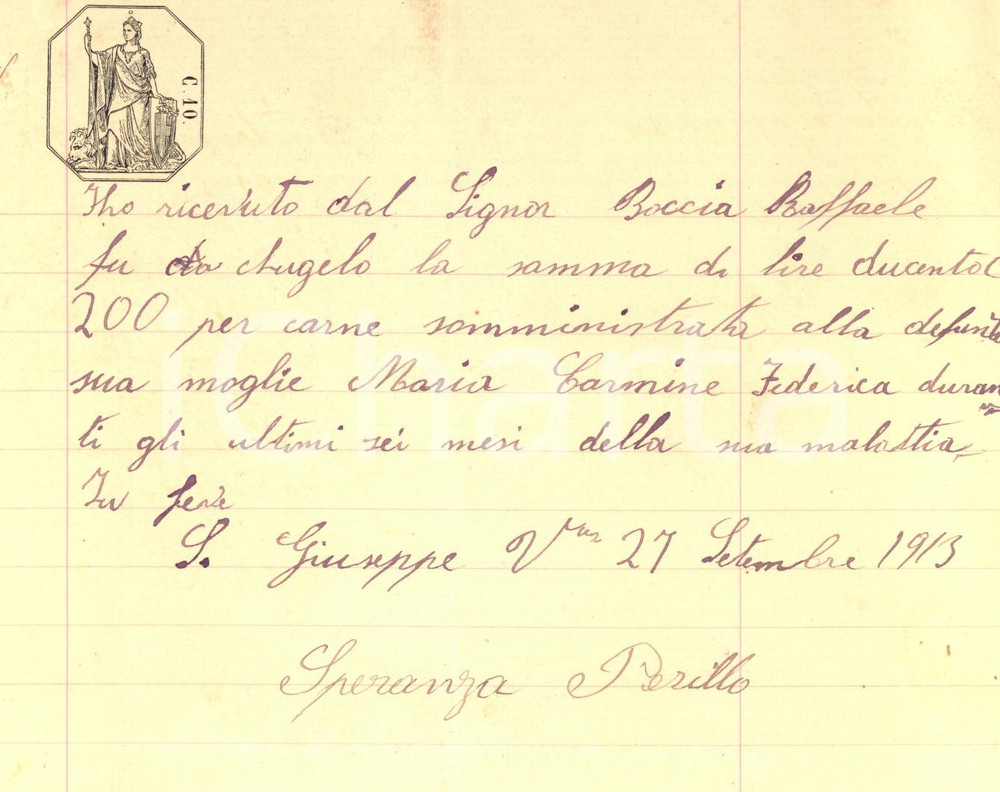 C. 10.
Ho ricevuto dal Signor Boccia Raffaele
fu Angelo la somma di lire ducento(
200 per carne somministrata alla defunta
sua moglie Maria Carmine Federica duran
ti gli ultimi sei mesi della sua malattia
In fede
S. Giuseppe 27 Setembre 1913
Speranza Perillo